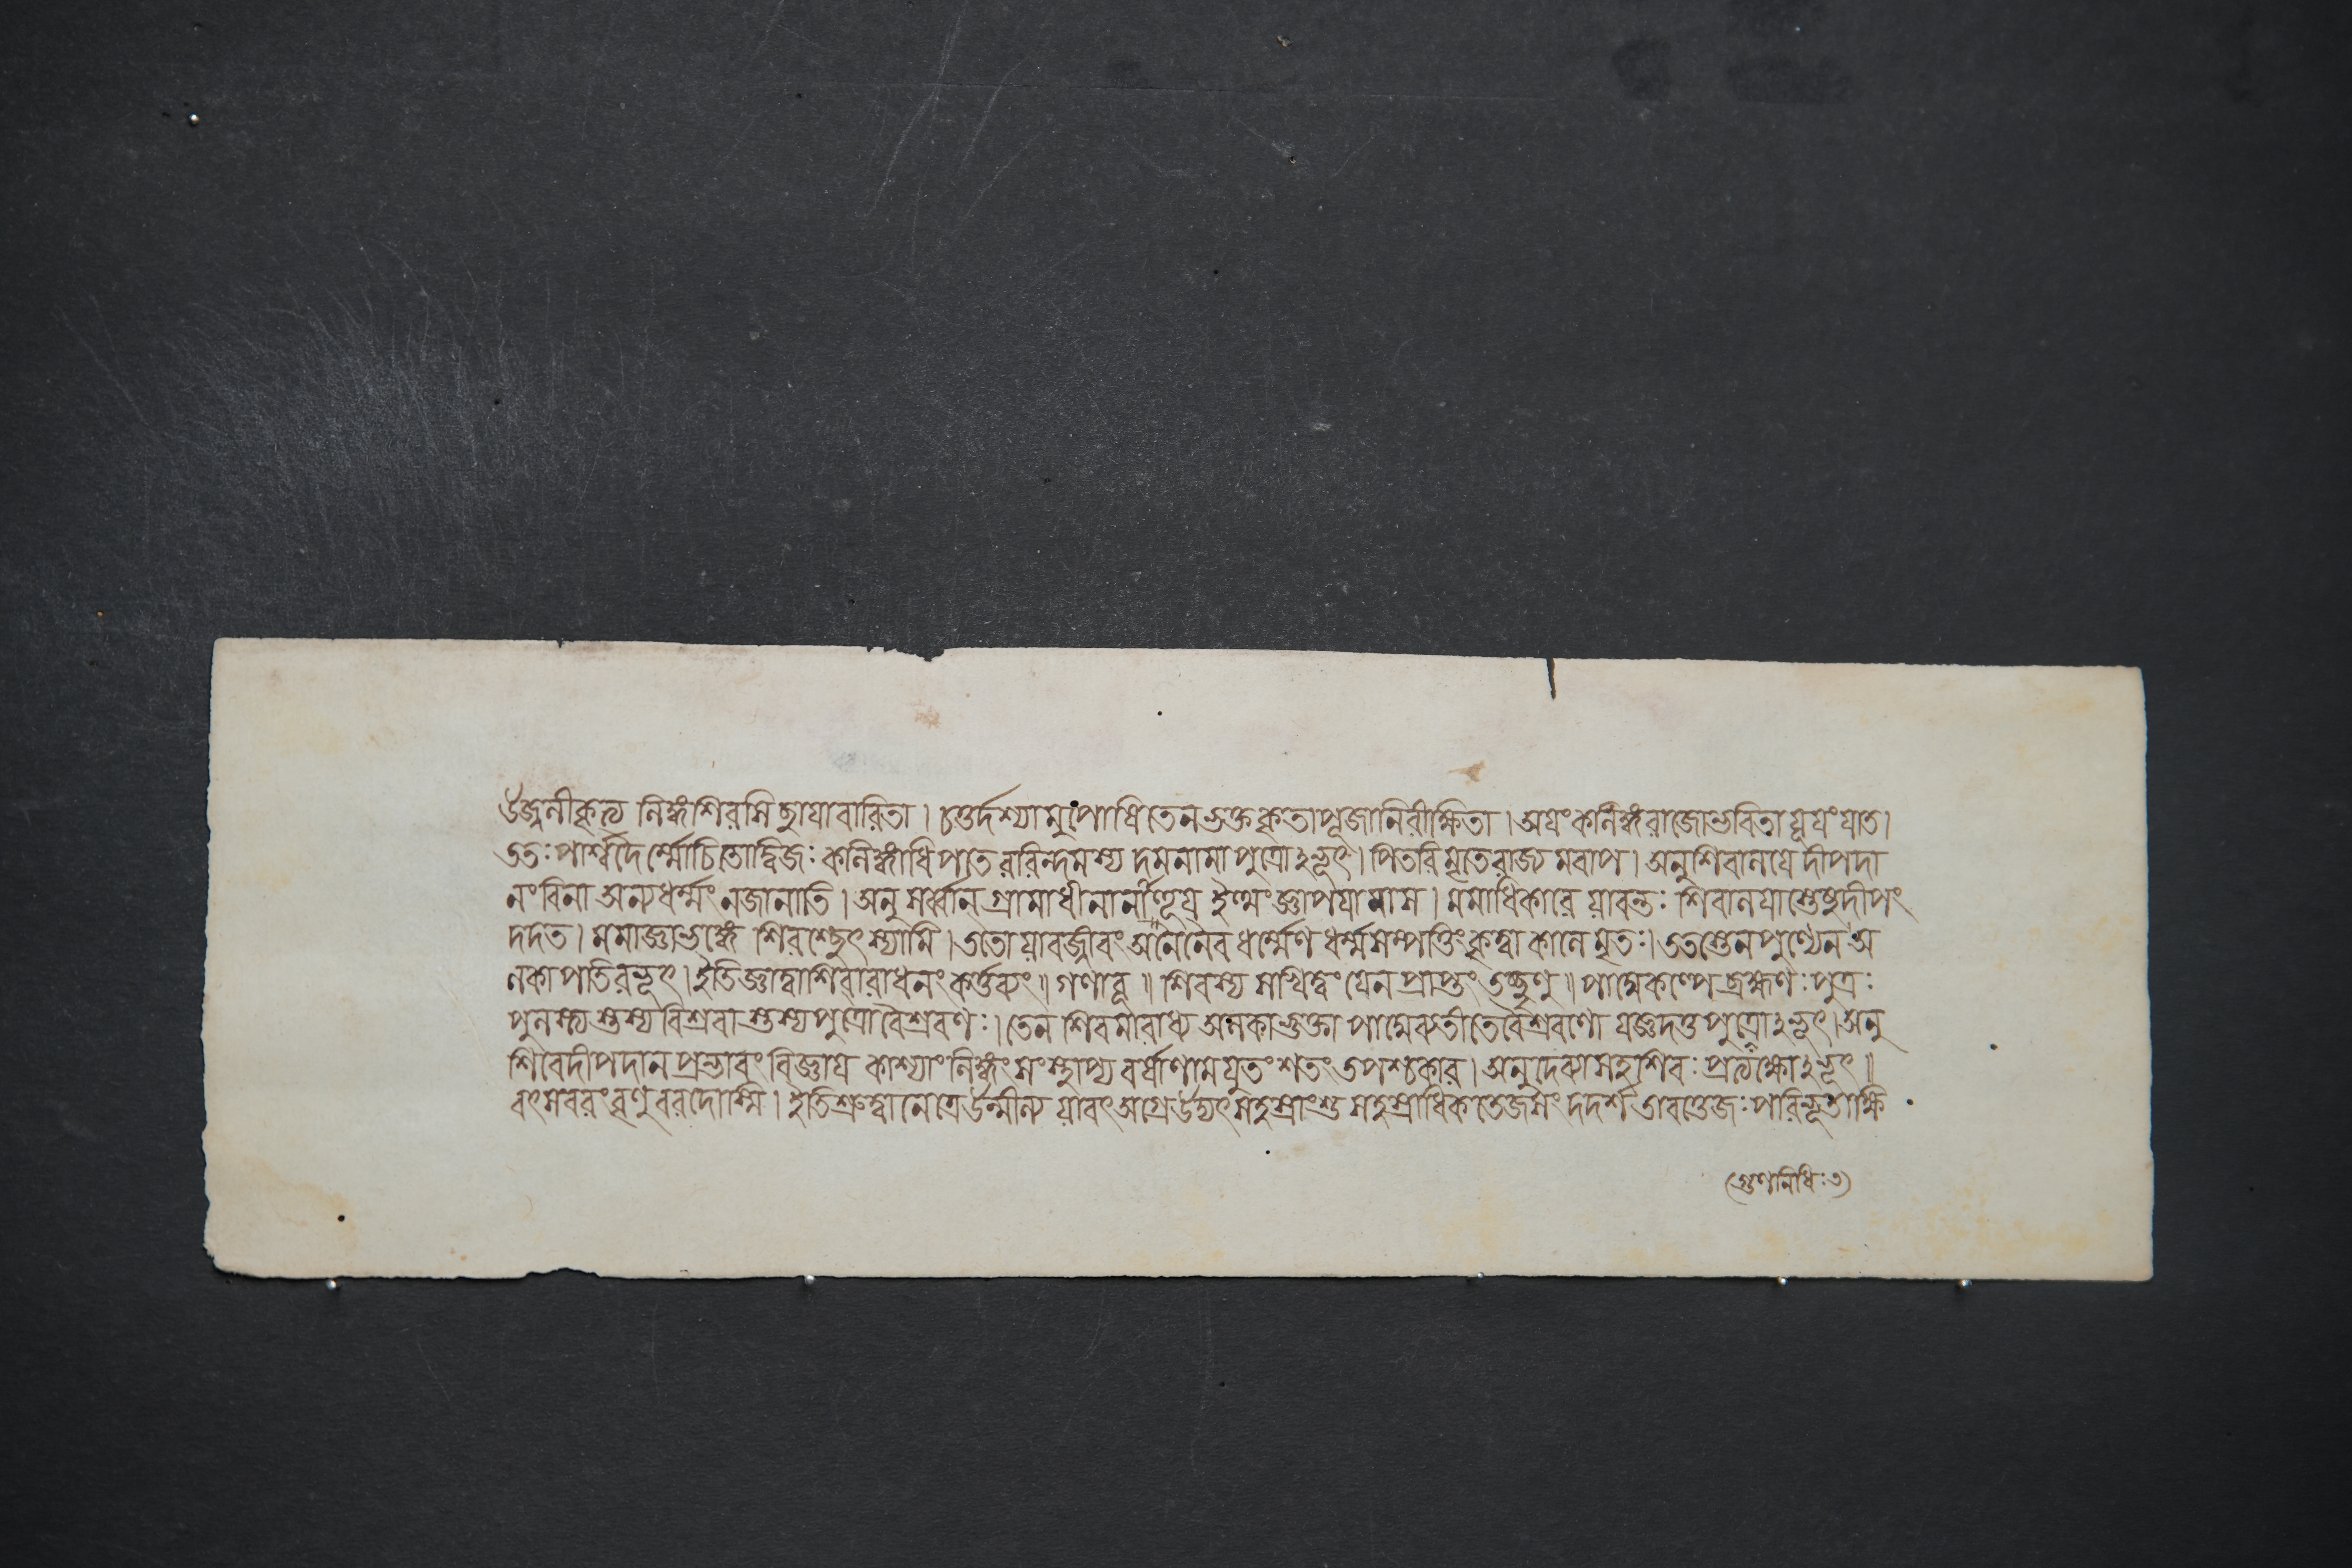 উজ্জ্বলীকৃত্য লিঙ্গশিরসি ছায়াবারিতা। চতুর্দ্দশ্যামুপোষিতেনভক্তকৃতাপূজানিরীক্ষিতা। অয়ংকলিঙ্গরাজোভবিতা যূয়ংযাত।
ততঃপার্শ্বদৈর্ম্মোচিতোদ্বিজঃ কলিঙ্গাধিপতেররিন্দমস্য দমনামাপুত্রোঽভূৎ। পিতরিমৃতেরাজ্যমবাপ। অনুশিবালয়েদীপদা
নংবিনা অন্যধর্ম্মংনজানাতি। অনু সর্ব্বান্ গ্রামাধীনার্নাহূয় ইত্থংজ্ঞাপয়ামাস। মমাধিকারে যাবন্তঃ শিবালয়াস্তেষুদীপং
দদত। মমাজ্ঞাভঙ্গে শিরশ্ছেৎস্যামি। ততোযাবজ্জীবং অনৈনৈব ধর্ম্মেণ ধর্ম্মসম্পত্তিংকৃত্বা কালে মৃতঃ। ততস্তেনপুণ্যেন অ
লকাপতিরভূৎ। ইতিজ্ঞাত্বাশিবারাধনংকর্ত্তব্যং॥ গণাবূ॥ শিবস্য সখিত্বংযেনপ্রাপ্তং তচ্ছৃণু॥ পাদ্মেকল্পেব্রহ্মণঃপুত্রঃ
পুলস্ত্যস্তস্য বিশ্রবাস্তস্যপুত্রোবৈশ্রবণঃ। তেন শিবমারাধ্য অলকাভুক্তা পাদ্মেব্যতীতেবৈশ্রবণো যজ্ঞদত্তপুত্রোঽভূৎ। অনু
শিবেদীপদানপ্রভাবং বিজ্ঞায় কাশ্যাংলিঙ্গংসংস্থাপ্য বর্ষাণামযুতংশতং তপশ্চকার। অনুদেব্যাসহশিবঃপ্রত্যক্ষোঽভূৎ॥
বৎসবরংবৃণুবরদোস্মি। ইতিশ্রুত্বানেত্রেউন্মীল্য যাবৎঅগ্রেউদ্যৎসহস্রাংশুসহস্রাধিকতেজসং দদর্শ তাবত্তেজঃপরিভূতাক্ষি
(গুণনিধিঃ৩)